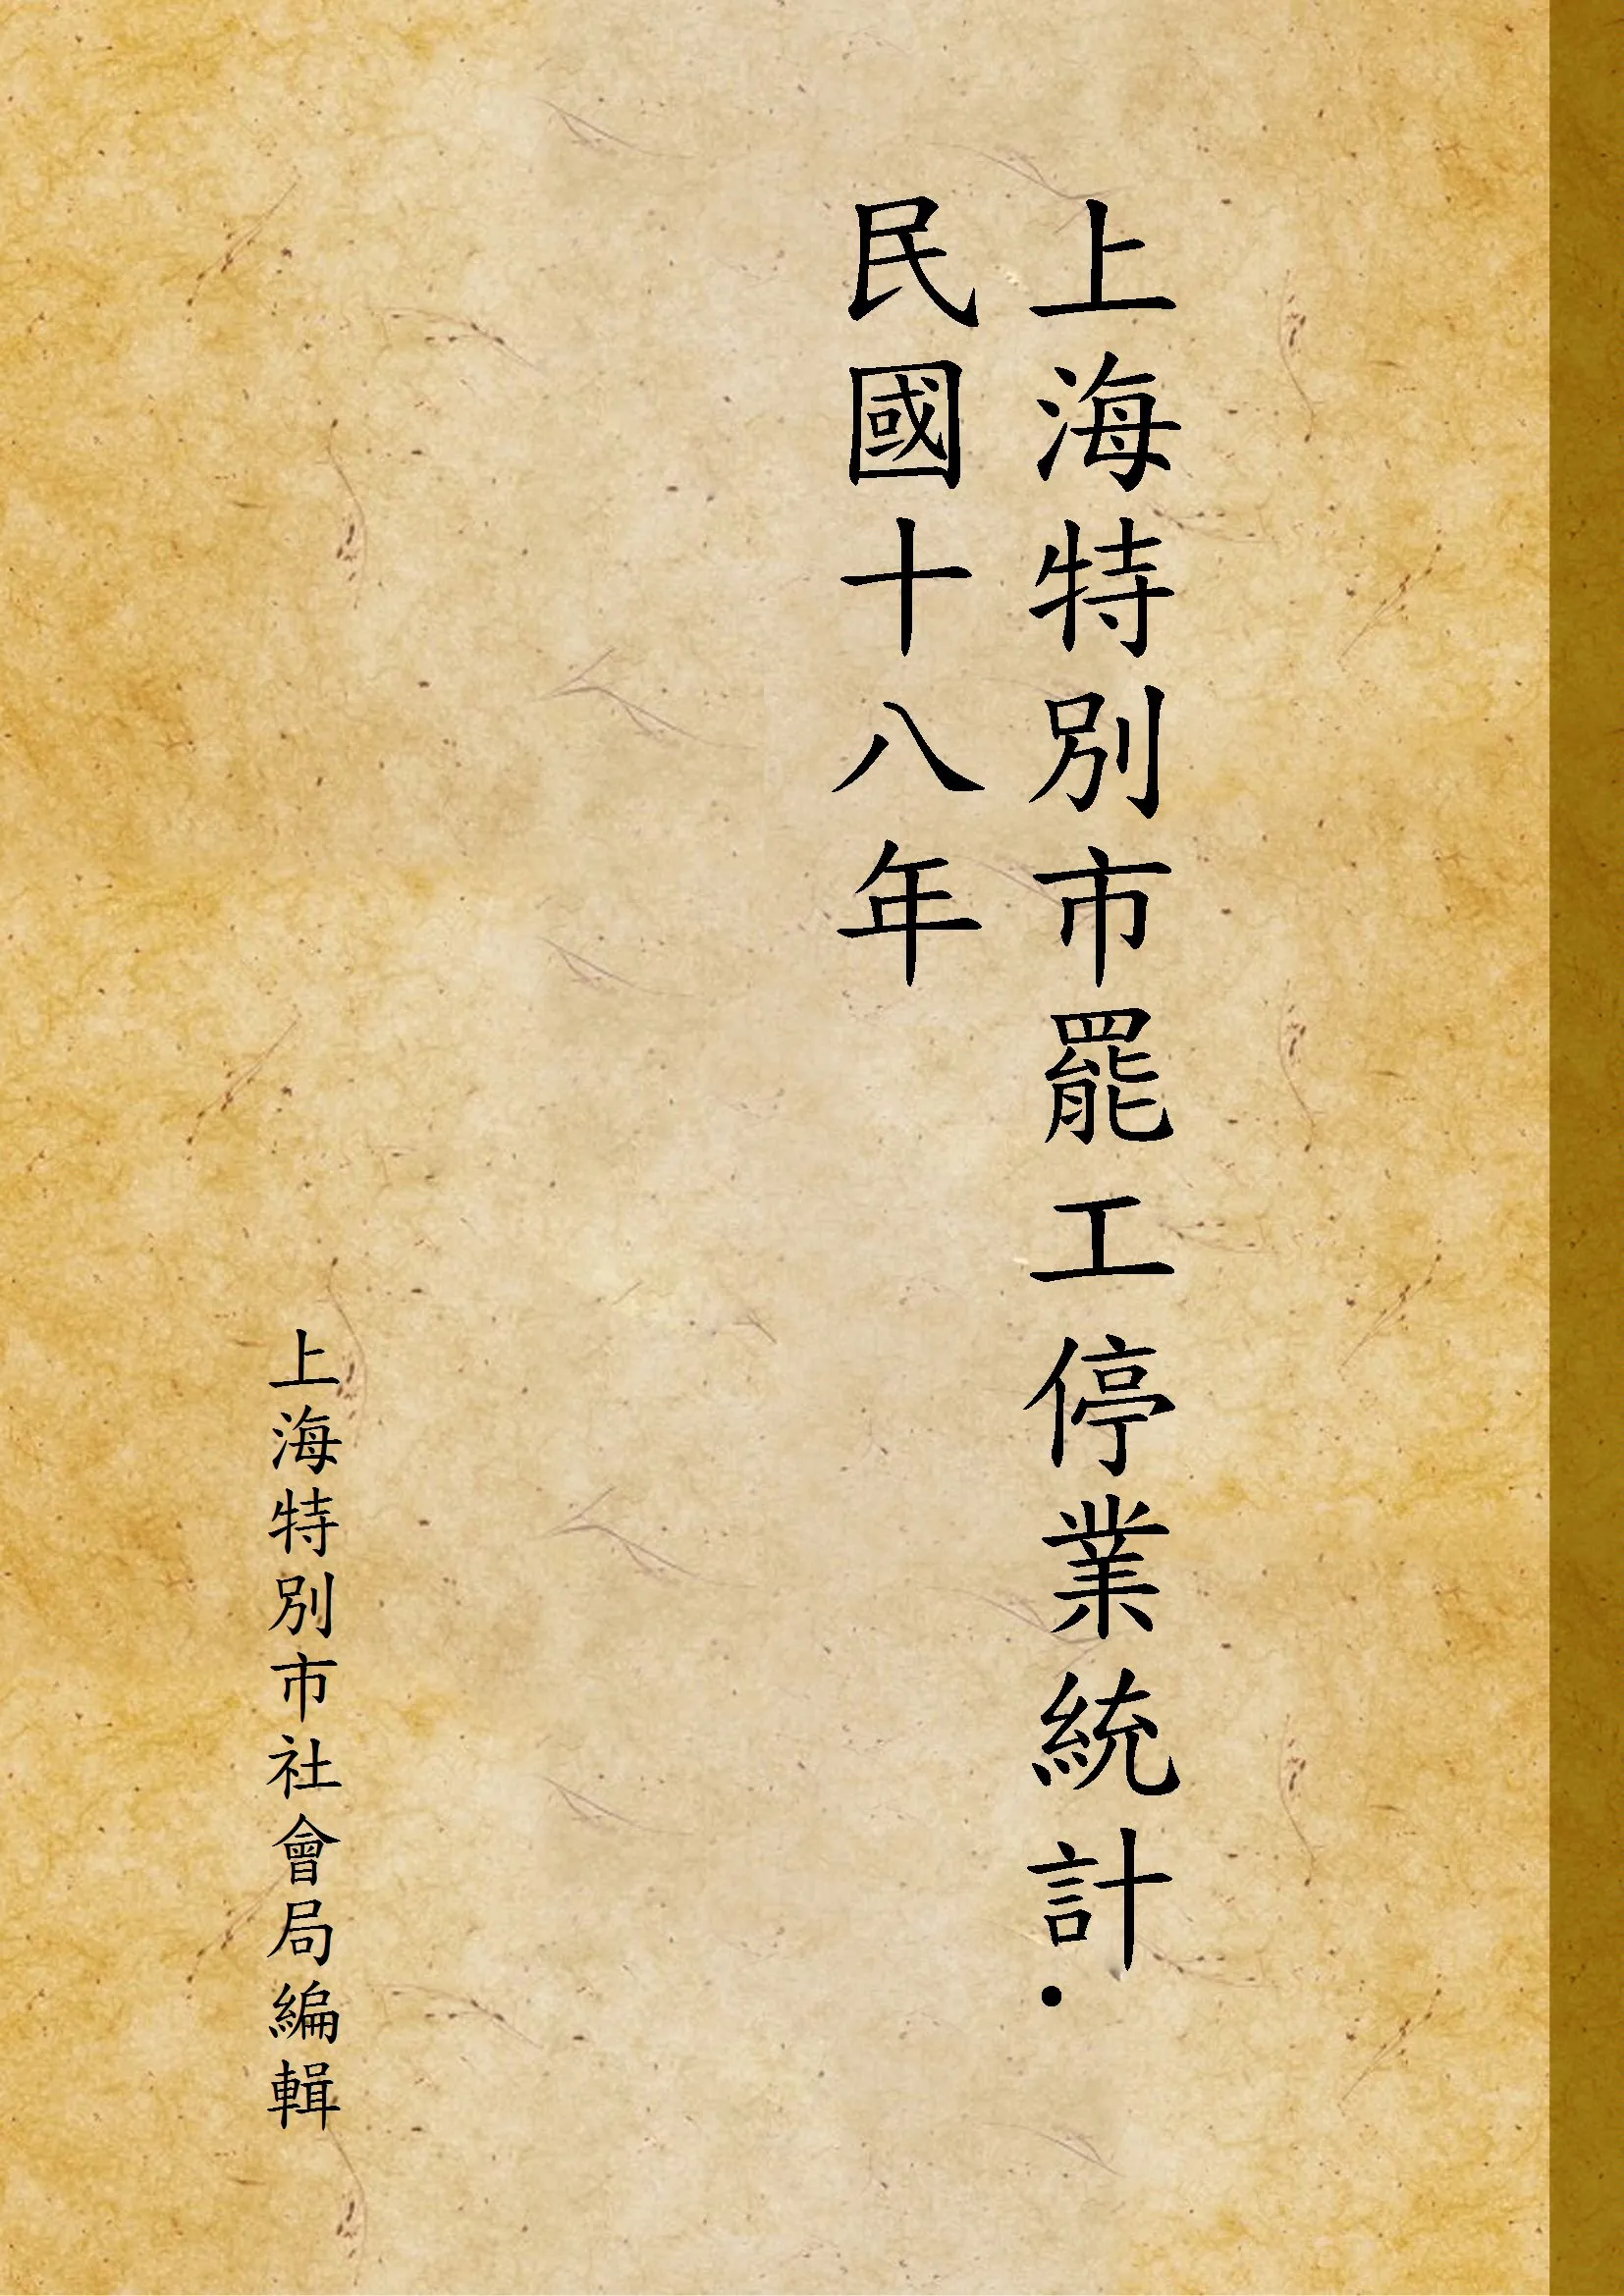 上海特別市罷工停業統計.
民國十八年
上海特別市社會局編輯